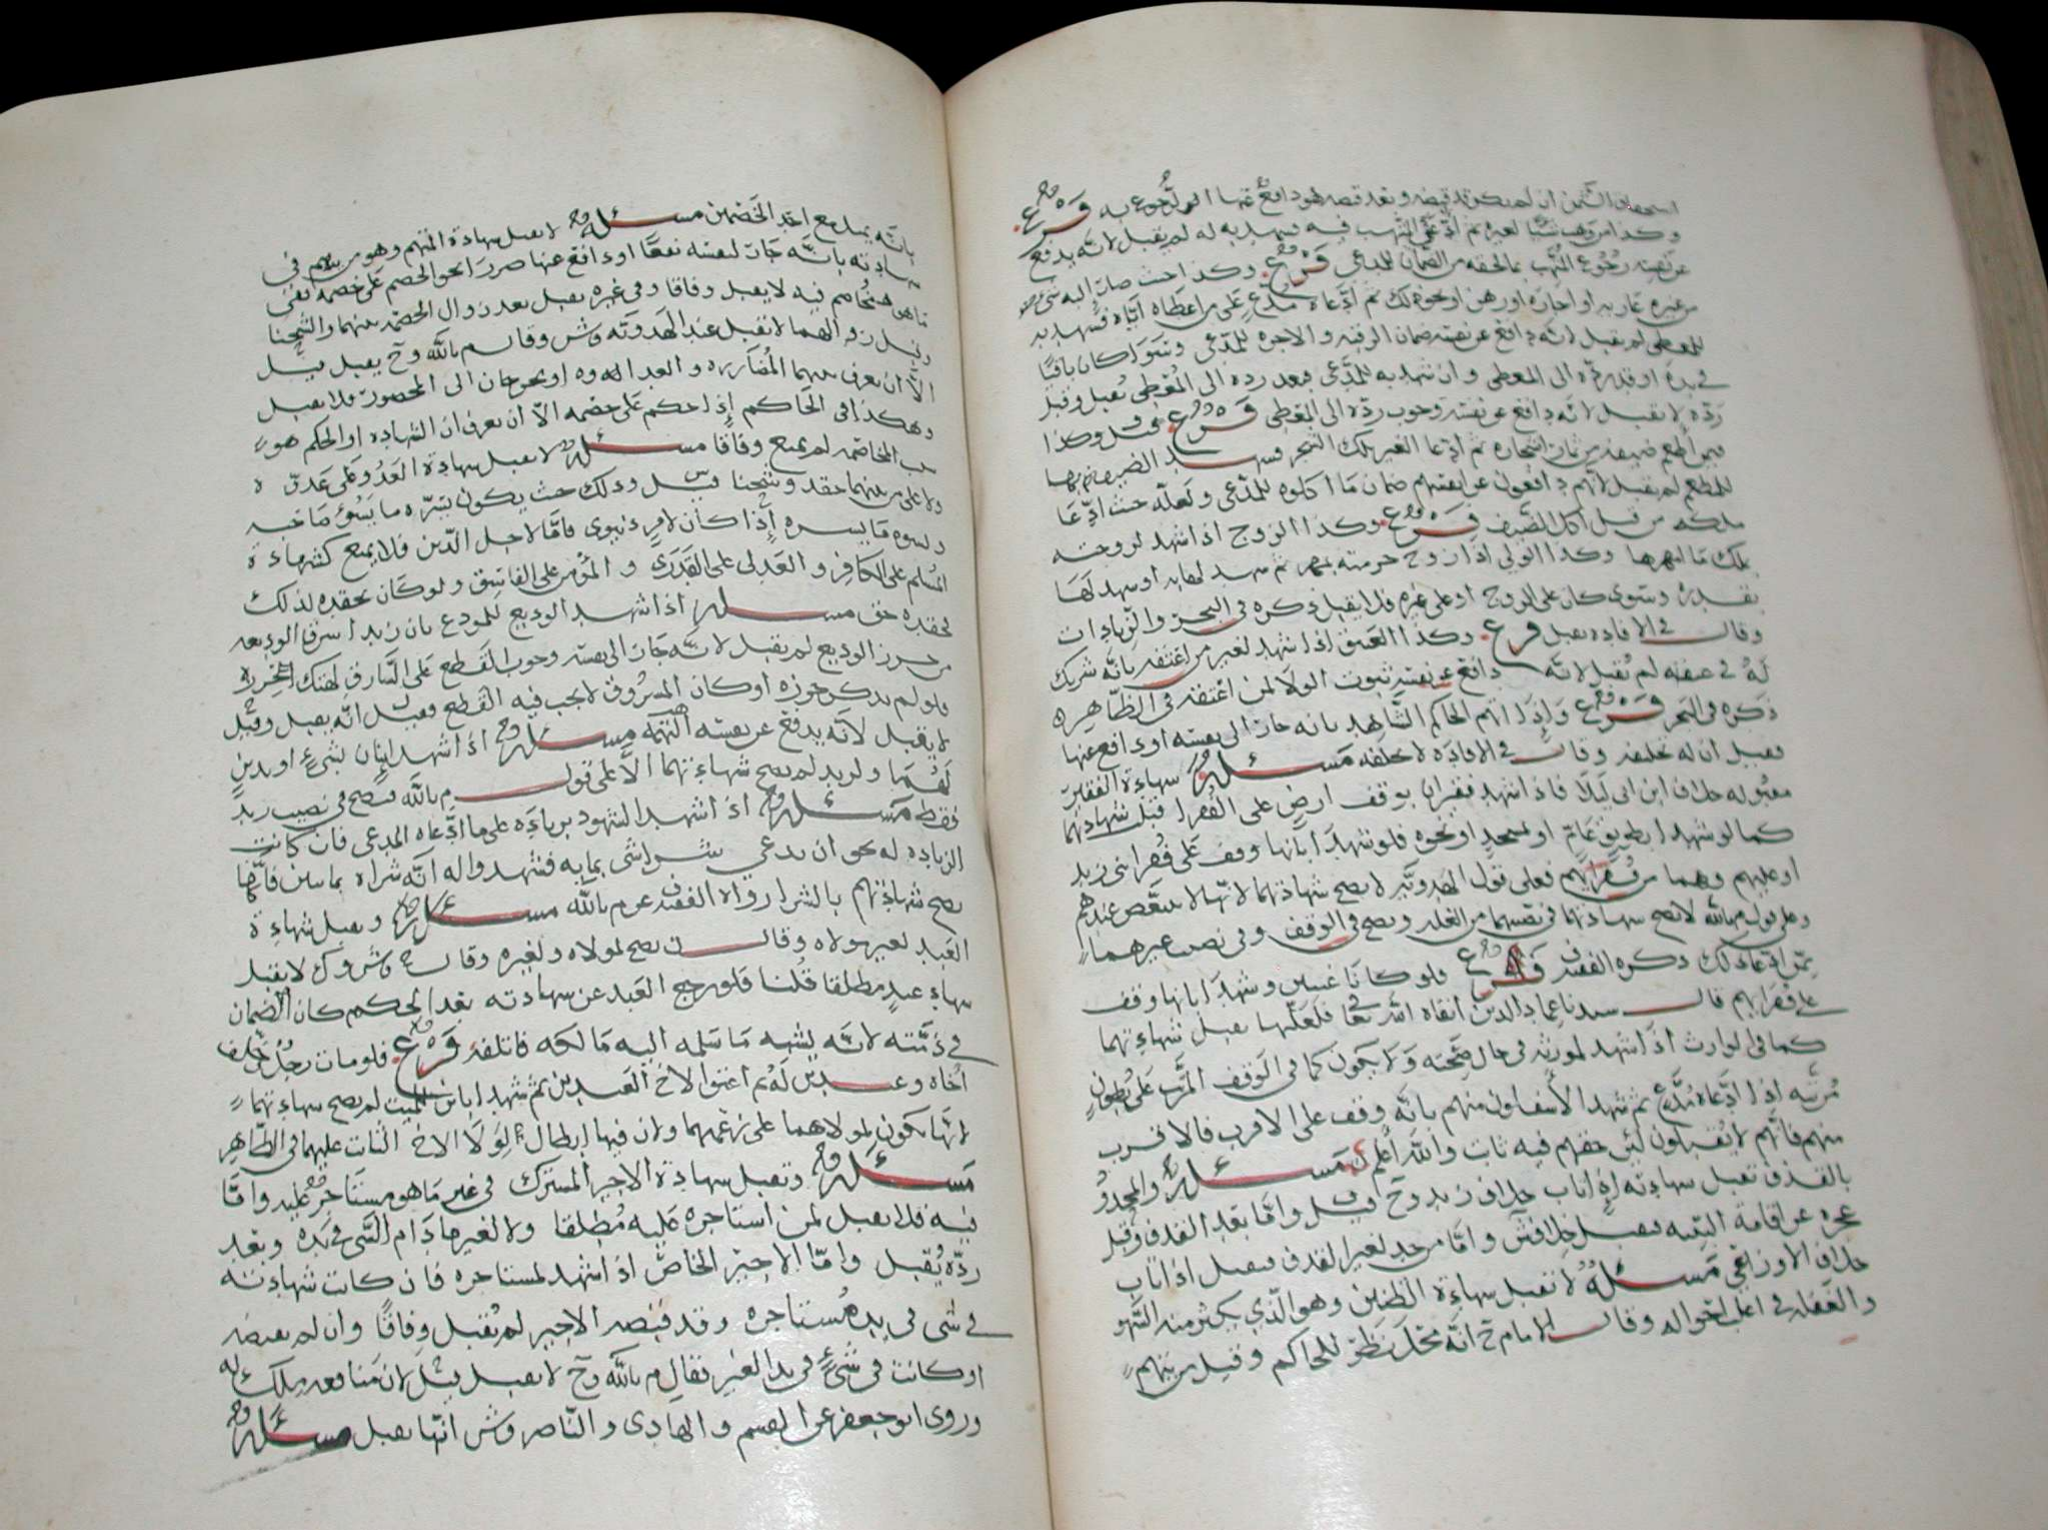 استحقاق الثمن ان لم يكن قد قبضه وبعد قبضه هو دافع عنها الرجوع به فرع
وكذا من وهب شيئا لغيره ثم ادعى النهب فيه فشهد به له لم يقبل لانه يدفع
عن نفسه رجوع المتهب بما لحقه من الضمان للمدعي فرع وكذا حيث صار إليه شيء
من غيره عارية او اجارة او رهن او نحو ذلك ثم ادعاه مدع على من اعطاه اياه فشهد به
للمعطي لم يقبل لانه دافع عن نفسه ضمان الرقبة والاجرة للمدعي وسوا كان باقيا
في يده او قد رده الى المعطي وان شهد به للمدعي فبعد رده الى المعطي يقبل وقبل
رده لا يقبل لانه دافع عن نفسه وجوب رده الى المعطي فرع قيل وكذا
فيمن اطعم ضيفه من ثمار اشجاره ثم ادعا الغير تلك الشجر فشهد الضيف بها
للمطعم لم يقبل لانهم دافعون عن انفسهم ضمان ما اكلوه للمدعي ولعله حيث ادعا
ملكه من قبل اكل الضيف فرع وكذا الزوج اذا شهد لزوجته
بملك ما امهرها وكذا الولي اذا زوج حرمته بمهر ثم شهد لها به او شهد لها
وسوى كان على الزوج او على غيره فلا يقبل ذكره في البحر والزيادات
وقال في الافادة يقبل فرع وكذا العتيق اذا شهد لغير من اعتقه بانه شريك
له في عتقه لم يقبل لانه دافع عن نفسه ثبوت الولا لمن اعتقه في الظاهر
ذكره في البحر فرع واذا اتهم الحاكم الشاهد بانه جار الى نفسه او دافع عنها
فقيل ان له تحليفه وقال في الافادة لا يحلفه مسئلة شهادة الفقير
مقبوله خلاف ابن ابي ليلا فاذا شهد فقيران بوقف ارض على الفقرا قبل شهادتهما
كما لو شهدا بطريق عام او مسجد او نحوه فلو شهدا بانها وقف على فقرا بني زيد
او عليهم وهما من فقرايهم فعلى قول الهدوية لا يصح شهادتهما لانها لا تتبعض عندهم
وعلى قول م بالله لا تصح شهادتهما في نصيبهما من الغلة ويصح في الوقف وفي نصيب غيرهما
ممن ادعا ذلك ذكره الفقيه ف فرع فلو كانا غنيين وشهدا بانها وقف
على فقرايهم قال سيدنا عماد الدين ابقاه الله تعا فلعلها يقبل شهادتهما
كما في الوارث اذا شهد لمورثه في حال صحته ولا يكون كما في الوقف المرتب على بطون
مرتبه اذا ادعاه مدع ثم شهد الاسفلون منهم بانه وقف على الاقرب فالاقرب
منهم فانهم لا يقبلون لئن حقهم فيه ثابت والله اعلم مسئلة والمحدود
بالقذف تقبل شهادته اذا تاب خلاف زيد وح قيل واما بعد القذف وقبل
عجزه عن اقامة البينه فيقبل خلاف ش واما من حد لغير القذف فيقبل اذا تاب
خلاف الاوزاعي مسئلة لا تقبل شهادة الظنين وهو الذي يكثر منه السهو
والغفله في اغلب احواله وقال الامام ح انه محل نظر للحاكم وقيل من يتهم
بانه يميل مع احد الخصمين مسئلة لا تقبل شهادة المتهم وهو من يتهم في
شهادته بانه جار لنفسه نفعا او دافع عنها ضررا نحو الخصم على خصمه ففي
ما هو مخاصم فيه لا يقبل وفاقا وفي غيره يقبل بعد زوال الخصمه بينهما والشحنا
وقبل زوالهما لا تقبل عند الهدويه وش وقال م بالله وح يقبل قيل
الا ان يعرف بينهما المضارره والعداوه او يخرجان الى المحضور فلا يقبل
وهكذا في الحاكم إذا حكم على خصمه الا ان يعرف ان الشهادة او الحكم هو
سبب المخاصمه لم يمنع وفاقا مسئلة لا تقبل شهادة العدو على عدوه
ولا على من بينهما حقد وشحنا قيل س وذلك حيث يكون يسره ما يسوء صاحبه
ويسوه ما يسره إذا كان لامر دنيوي فاما لاجل الدين فلا يمنع كشهادة
المسلم على الكافر والعدلي على القدري والمؤمن على الفاسق ولو كان يحقده لذلك
فحقده حق مسئلة اذا شهد الوديع للمودع بان زيدا سرق الوديعه
من حرز الوديع لم يقبل لانه جار الى نفسه وجوب القطع على السارق لهتك الحرز
فلو لم يكن حرزه او كان المسروق لا يجب فيه القطع فقيل انه يقبل وقيل
لا يقبل لانه يدفع عن نفسه التهمه مسئلة اذا شهد اثنان بشيء او بدين
لهما ولزيد لم يصح شهادتهما الا على قول م بالله فتصح في نصيب زيد
فقط مسئلة اذا شهد الشهود بزيادة على ما ادعاه المدعي فان كانت
الزيادة له نحو ان يدعي شرا شي بمايه فشهدوا له انه شراه بمايتين فانها
يصح شهادتهم بالشرا رواه الفقيه ف عن م بالله مسئلة وتقبل شهادة
العبد لغير مولاه وقال ن يصح لمولاه ولغيره وقال ح وش وك لا يقبل
شهادة عبد مطلقا قلنا فلو رجع العبد عن شهادته بعد الحكم كان الضمان
في ذمته لانه يشبه ما سلمه اليه مالكه فاتلفه فرع فلو مات رجل خلف
اخاه وعبدين له ثم اعتق الاخ العبدين ثم شهدا بابن للميت لم يصح شهادتهما
لانها تكون لمولاهما على زعمهما وان فيها إبطال الولا الاخ الثابت عليهما في الظاهر
مسئلة وتقبل شهادة الاجير المشترك في غير ما هو مستاجر عليه واما
فيه فلا يقبل لمن استاجره عليه مطلقا ولا لغيره ما دام الشي في يده وبعد
رده يقبل واما الاجير الخاص اذا شهد لمستاجره فان كانت شهادته
في شي في يد مستاجره وقد قبضه الاجير لم تقبل وفاقا وان لم يقبضه
او كانت في شيء في يد الغير فقال م بالله وح لا يقبل قيل لان منافعه ملك له
وروى ابو جعفر عن القسم والهادي والناصر وش انها تقبل مسئلة